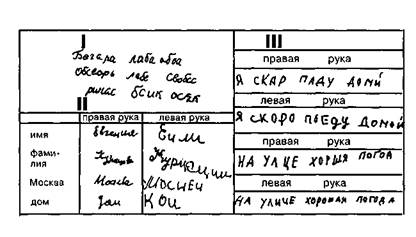 I
Богара лаба обоа
Обсворь лебе свобсс
рикас бсик осек
II
правая рука левая рука
имя Евгения Еили
фами-
лия
Москва Москва
дом Дом Кои
III
правая рука
Я СКАР ПАДУ ДОМЙ
левая рука
Я СКОРО ПОЕДУ ДОМОЙ
правая рука
НА УЛЦЕ ХОРШЯ ПОГОА
левая рука
НА УЛИЧЕ ХОРОШАЯ ПОГОДА